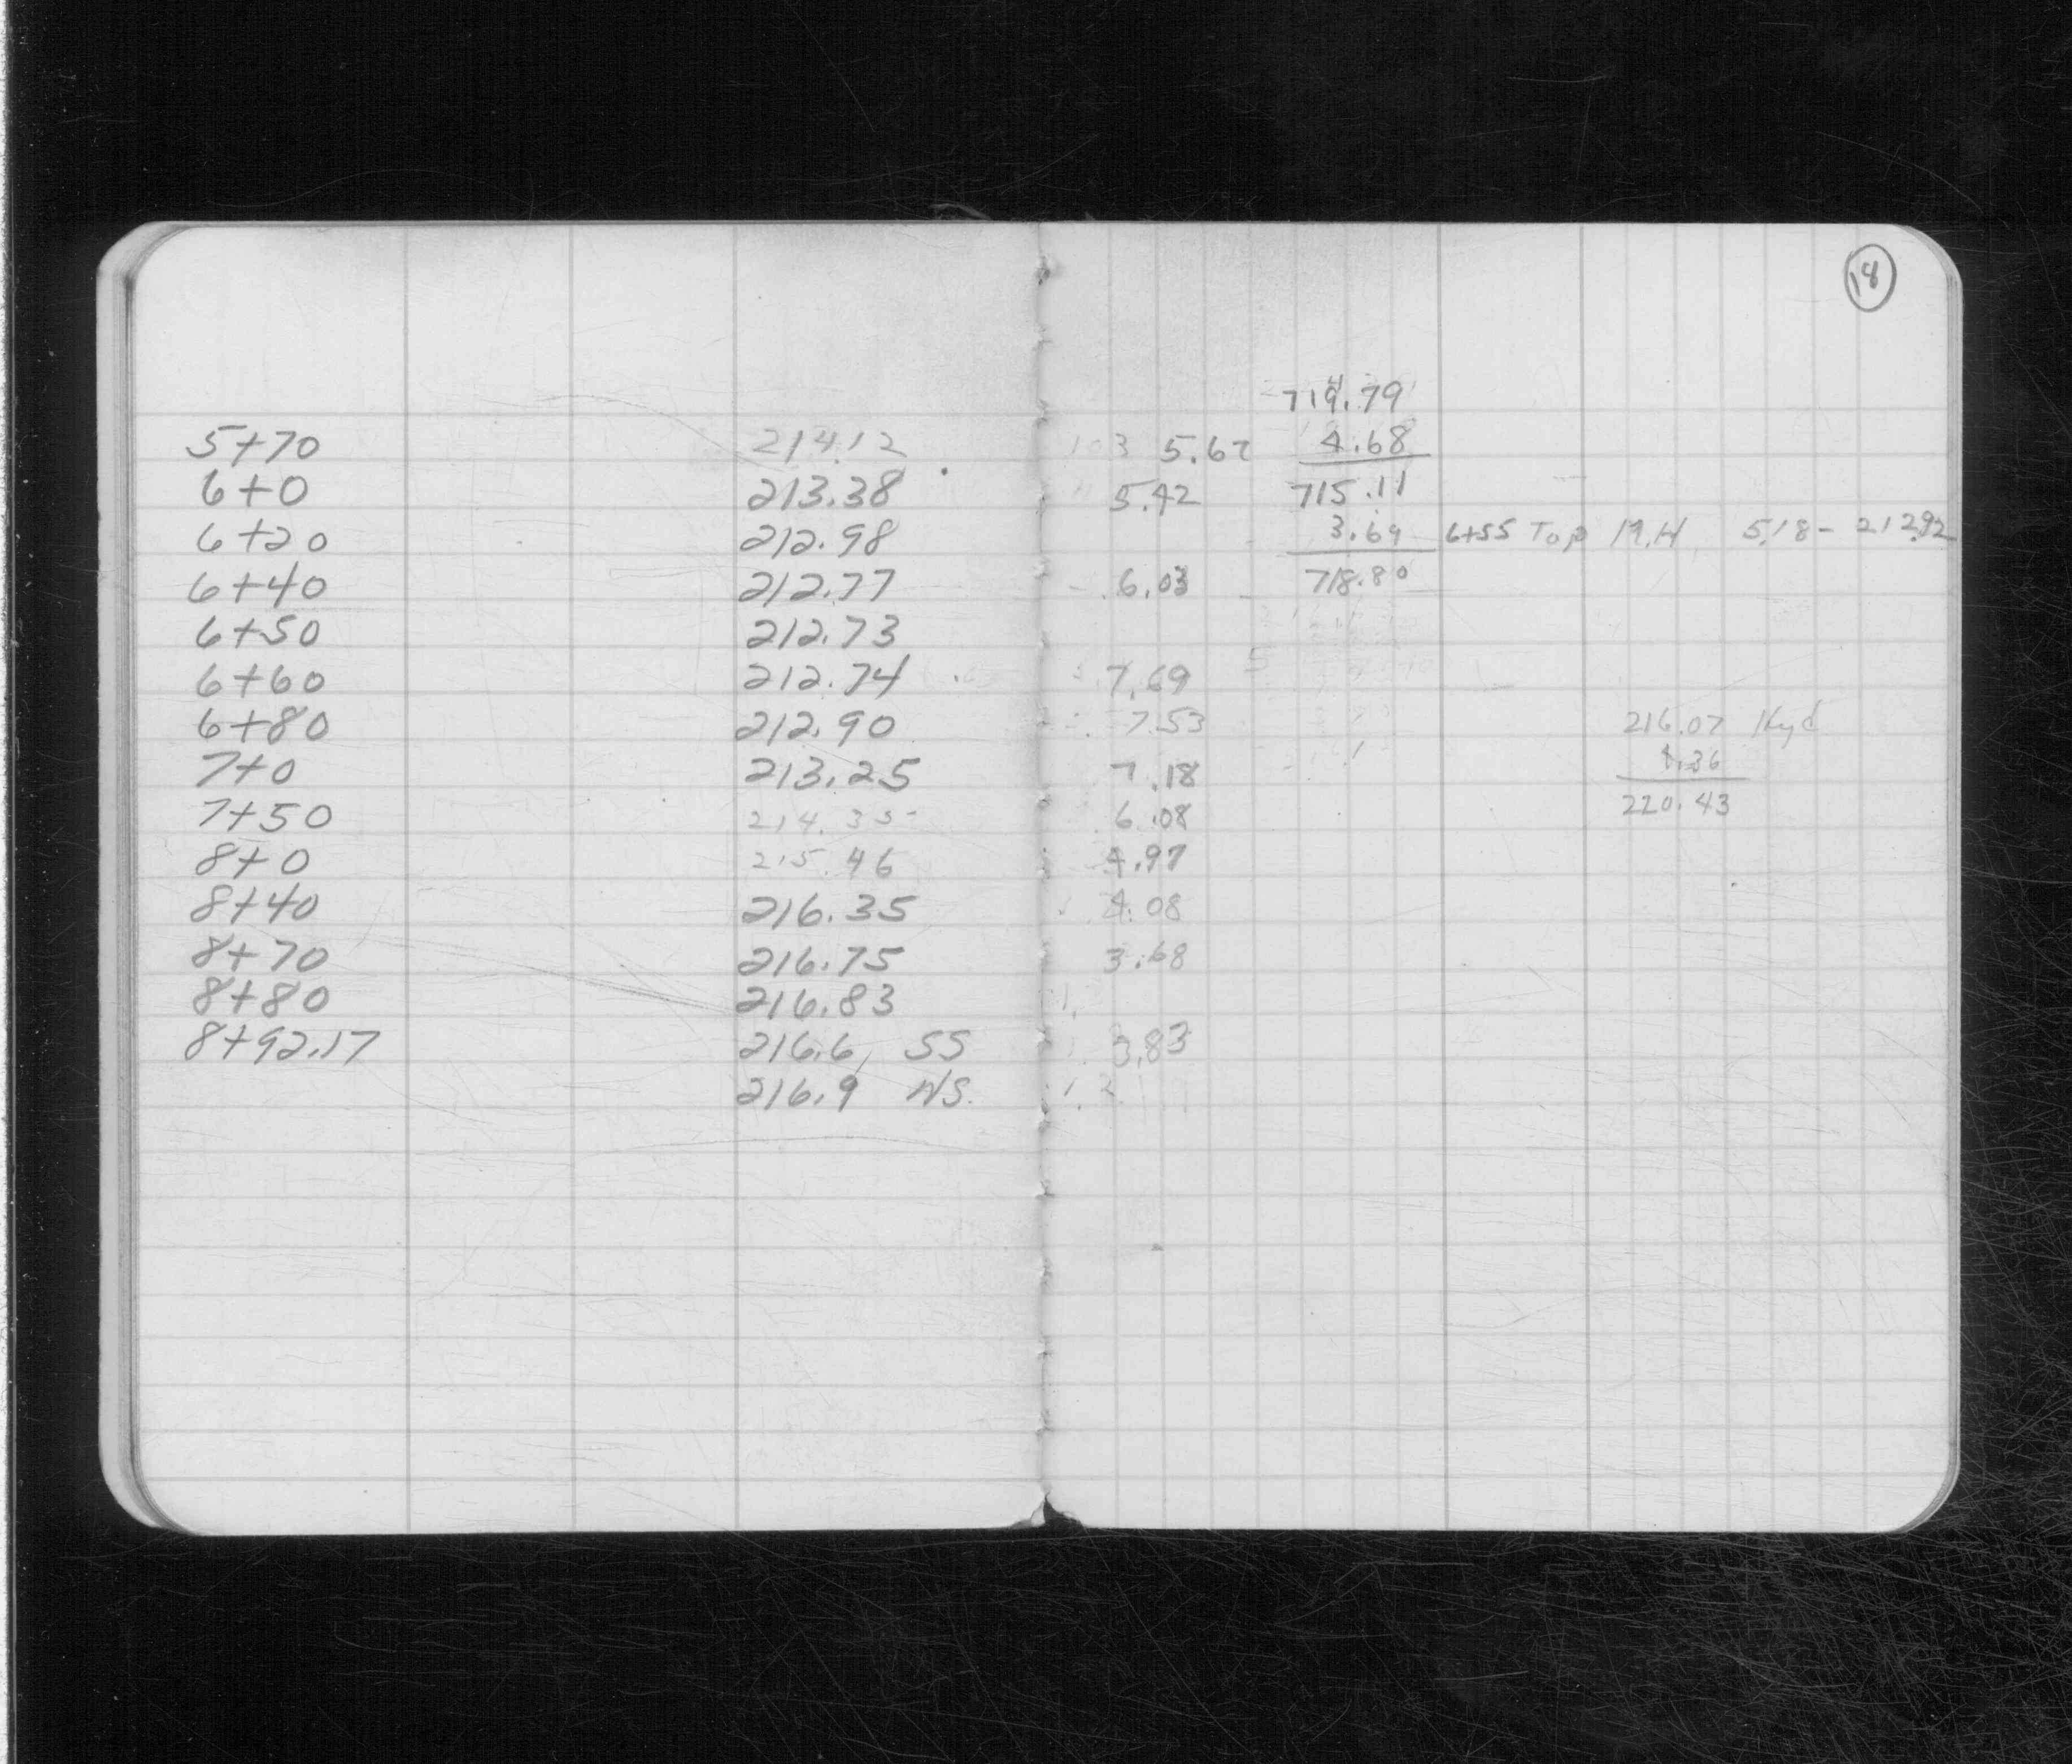 18
719.79
5+70 214.12 5.67 4.68
6+0 213.38 5.42 715.11
6+20 212.98 3.69 6+55 Top M.H 5.18 - 212.92
6+40 212.77 6.03 718.80
6+50 212.73
6+60 212.74 7.69
6+80 212.90 7.53 216.07 Hyd
7+0 213.25 7.18 4.36
7+50 214.35 6.08 220.43
8+0 215.46 4.97
8+40 216.35 4.08
8+70 216.75 3.68
8+80 216.83
8+92.17 216.6 SS 3.83
216.9 NS.